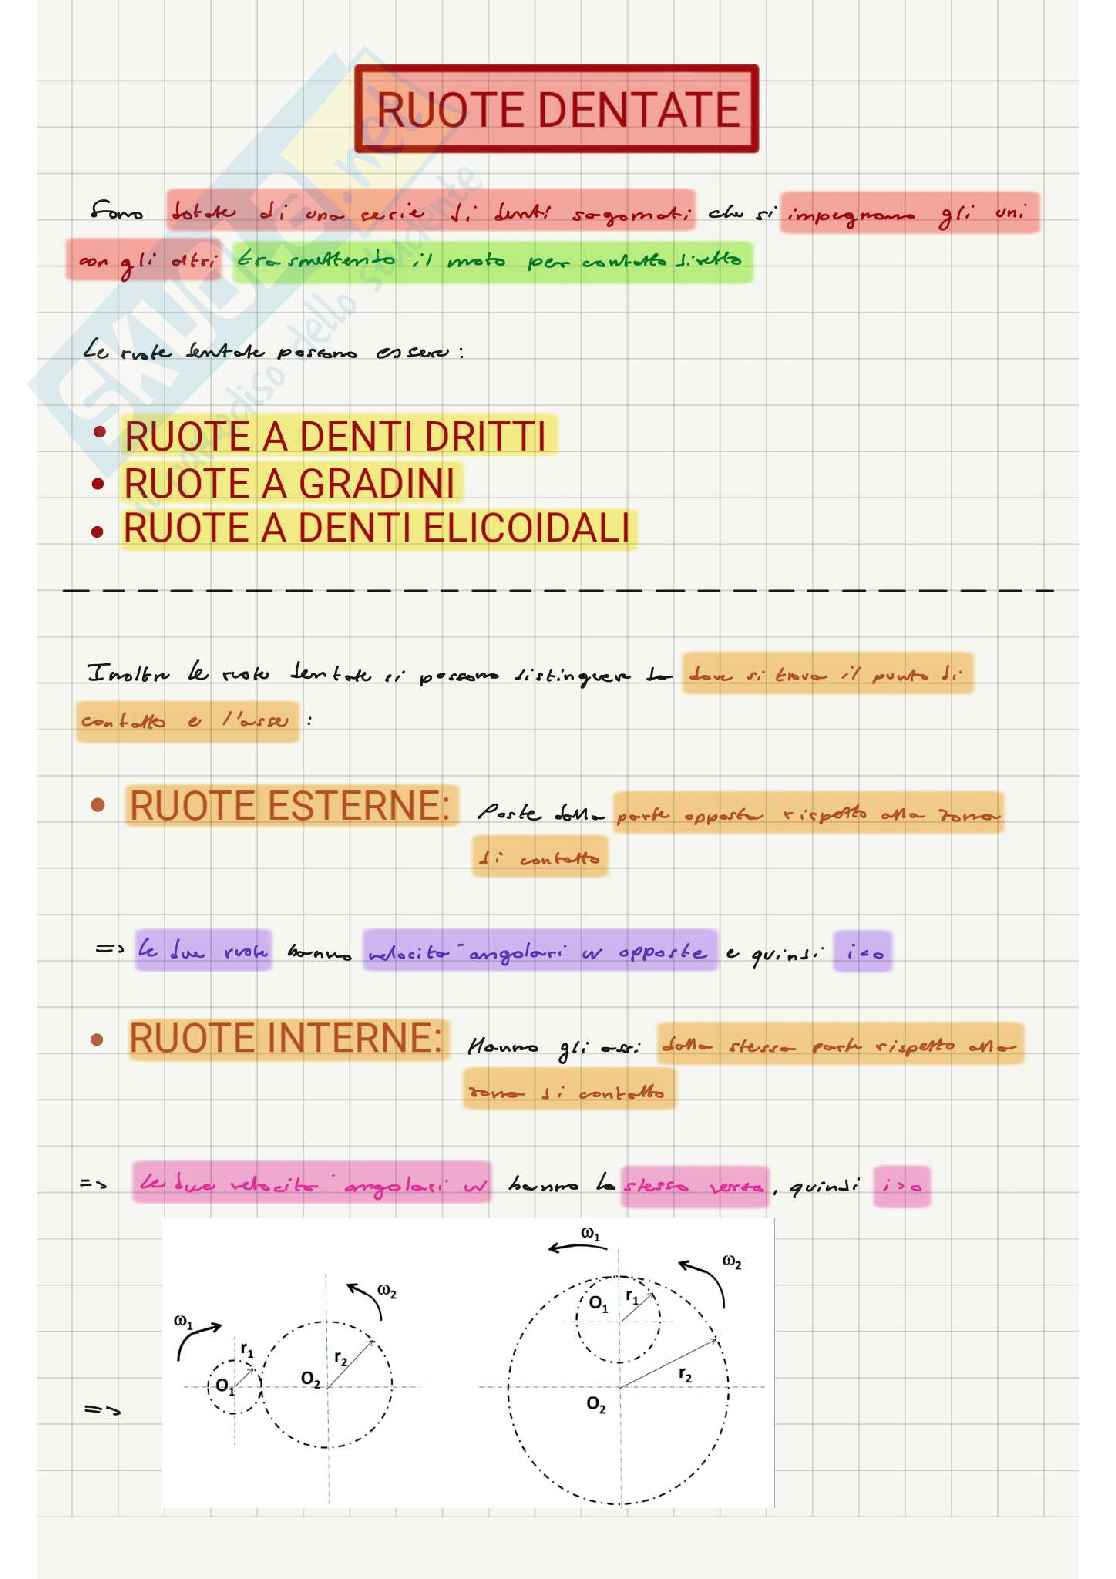 RUOTE DENTATE
Sono dotate di una serie di denti sagomati che si impegnano gli uni
con gli altri trasmettendo il moto per contatto diretto
Le ruote dentate possono essere :
• RUOTE A DENTI DRITTI
• RUOTE A GRADINI
• RUOTE A DENTI ELICOIDALI
Inoltre le ruote dentate si possono distinguere da dove si trova il punto di
contatto e l'asse :
• RUOTE ESTERNE: Poste dalla parte opposta rispetto alla zona
di contatto
=> Le due ruote hanno velocità angolari w opposte e quindi i<0
• RUOTE INTERNE: Hanno gli assi dalla stessa parte rispetto alla
zona di contatto
=> Le due velocità angolari w hanno lo stesso verso, quindi i>0
ω1 r1 O1 ω2 r2 O2
ω1 r1 O1 ω2 r2 O2
=>
SKUOLA.net
dello studente